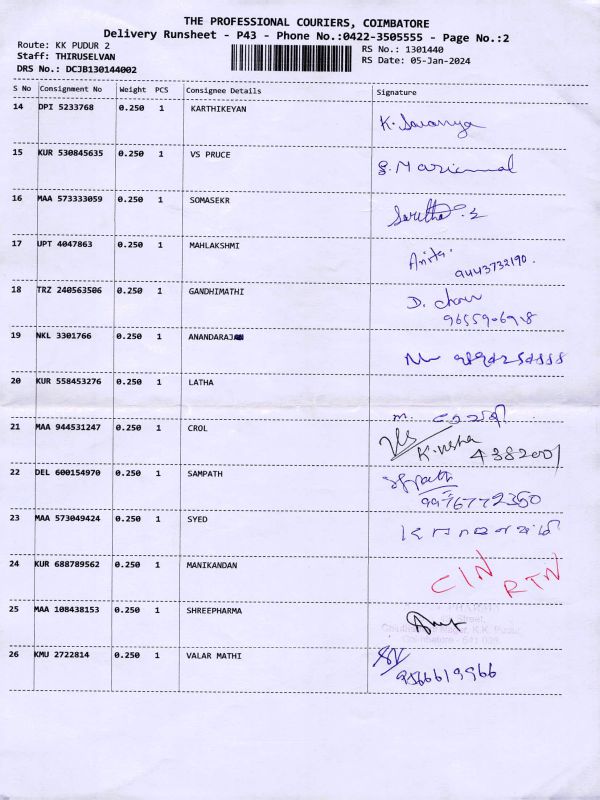 THE PROFESSIONAL COURIERS, COIMBATORE
Delivery Runsheet - P43 - Phone No.:0422-3505555 - Page No.:2
Route: KK PUDUR 2 RS No.: 1301440
Staff: THIRUSELVAN RS Date: 05-Jan-2024
DRS No.: DCJB130144002
S No Consignment No Weight PCS Consignee Details Signature
14 DPI 5233768 0.250 1 KARTHIKEYAN K. Saranya
15 KUR 530845635 0.250 1 VS PRUCE
16 MAA 573333059 0.250 1 SOMASEKR Saritha. S
17 UPT 4047863 0.250 1 MAHLAKSHMI Anita.
9443732190.
18 TRZ 240563506 0.250 1 GANDHIMATHI D.
19 NKL 3301766 0.250 1 ANANDARAJAN
20 KUR 558453276 0.250 1 LATHA
21 MAA 944531247 0.250 1 CROL K. Usha 4382001
22 DEL 600154970 0.250 1 SAMPATH
9976772350
23 MAA 573049424 0.250 1 SYED
24 KUR 688789562 0.250 1 MANIKANDAN CIN RTN
25 MAA 108438153 0.250 1 SHREEPHARMA
26 KMU 2722814 0.250 1 VALAR MATHI
9566619966